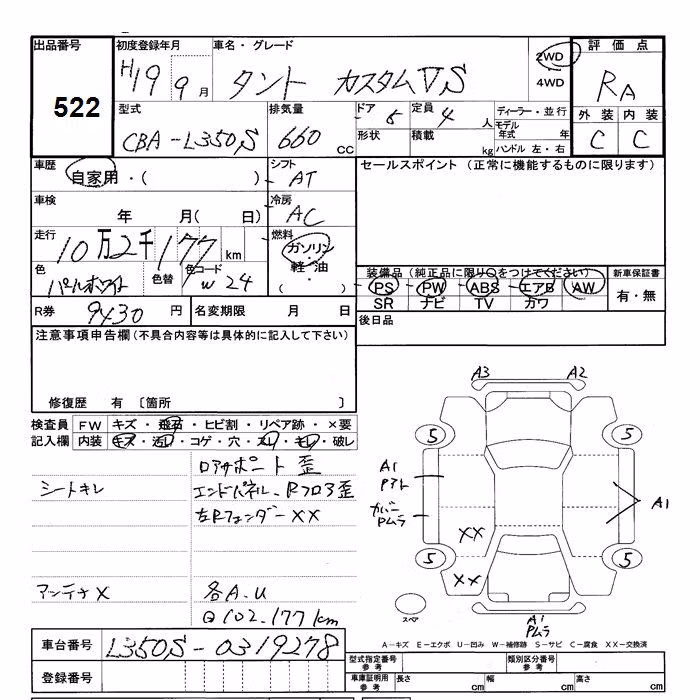 出品番号
522
初度登録年月
H19 9月
車名・グレード
タント カスタムVS
2WD
4WD
評価点
RA
外装 内装
C C
型式
CBA-L350S
排気量
660 CC
ドア 5
定員 4人
形状
積載 kg
ディーラー・並行
モデル年式 年
ハンドル 左・右
車歴
自家用・( )
シフト
AT
セールスポイント (正常に機能するものに限ります)
車検
年 月( 日)
冷房
AC
走行
10万2千177km
燃料
ガソリン
軽・油
( )
色
パールホワイト
色替
色コード
W24
装備品 (純品品に限り○をつけてください)
PS PW ABS エアB AW
SR ナビ TV カワ
新車保証書
有・無
R券
9430 円
名変期限 月 日
後日品
注意事項申告欄(不具合内容等は具体的に記入して下さい)
修復歴 有 〔箇所 〕
検査員記入欄
FW キズ・飛石・ヒビ割・リペア跡・×要
内装 キズ・汚レ・コゲ・穴・スレ・キレ・破レ
ロアサポート歪
シートキレ
エンドパネル、Rフロア歪
左Rフェンダー××
アンテナ×
各A.U
102.177km
A3 A2
5 5
A1
カバー
Pムラ
A1
××
5 5
××
スペア
A1
Pムラ
A-キズ E-エクボ U-凹み W-補修跡 S-サビ C-腐食 XX-交換済
車台番号
L350S-0319278
型式指定番号
参考
類別区分番号
参考
登録番号
車庫証明用
参考
長さ cm 幅 cm 高さ cm